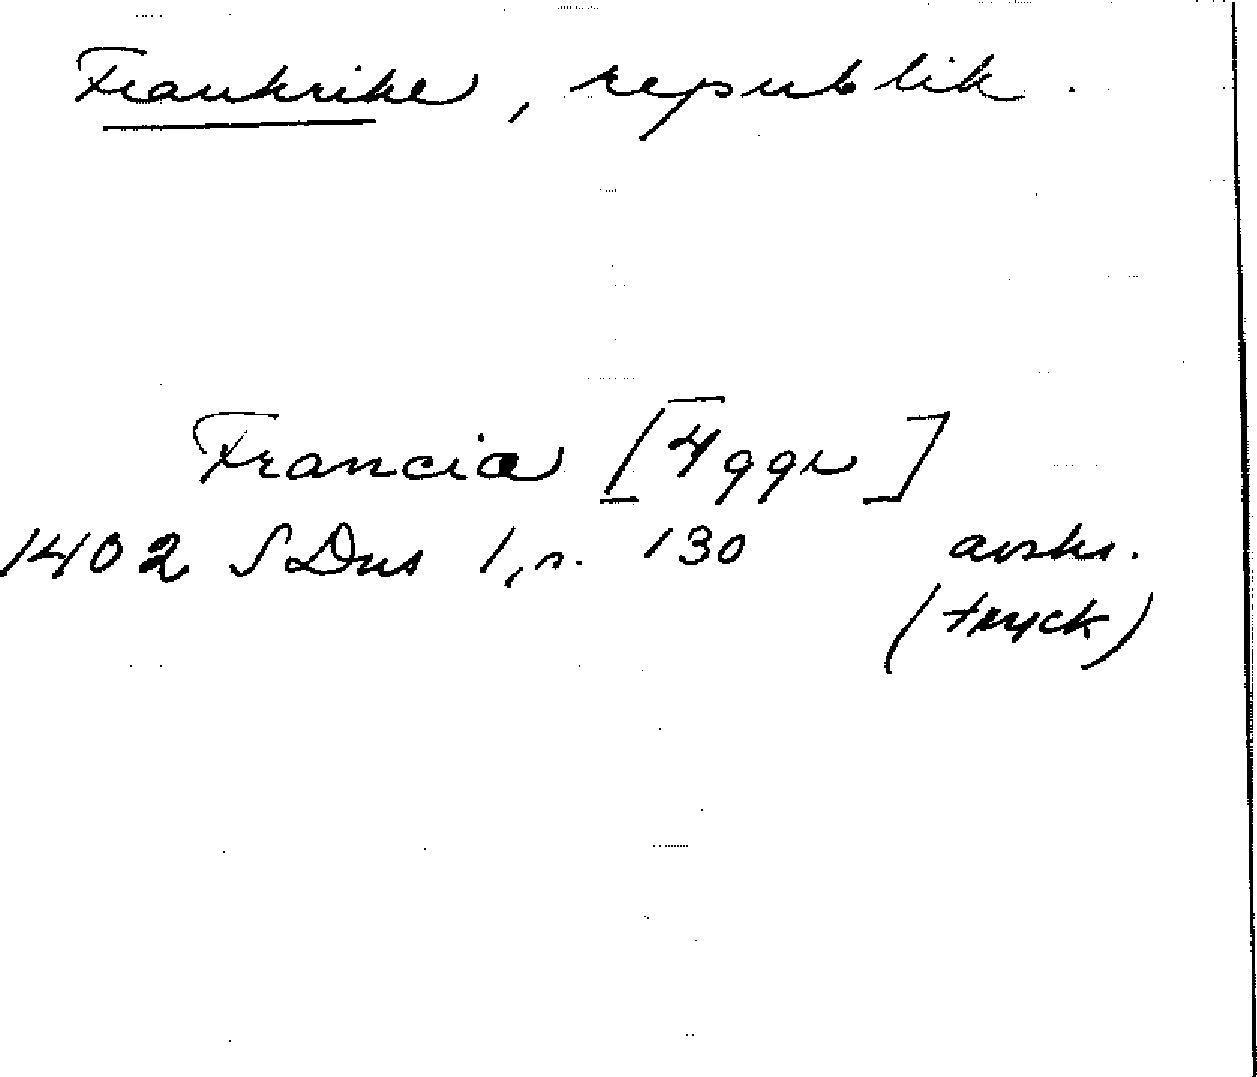 Frankrike, republik.
Francia [4 ggr]
1402 SDns 1, n. 130 avskr.
(tryck)